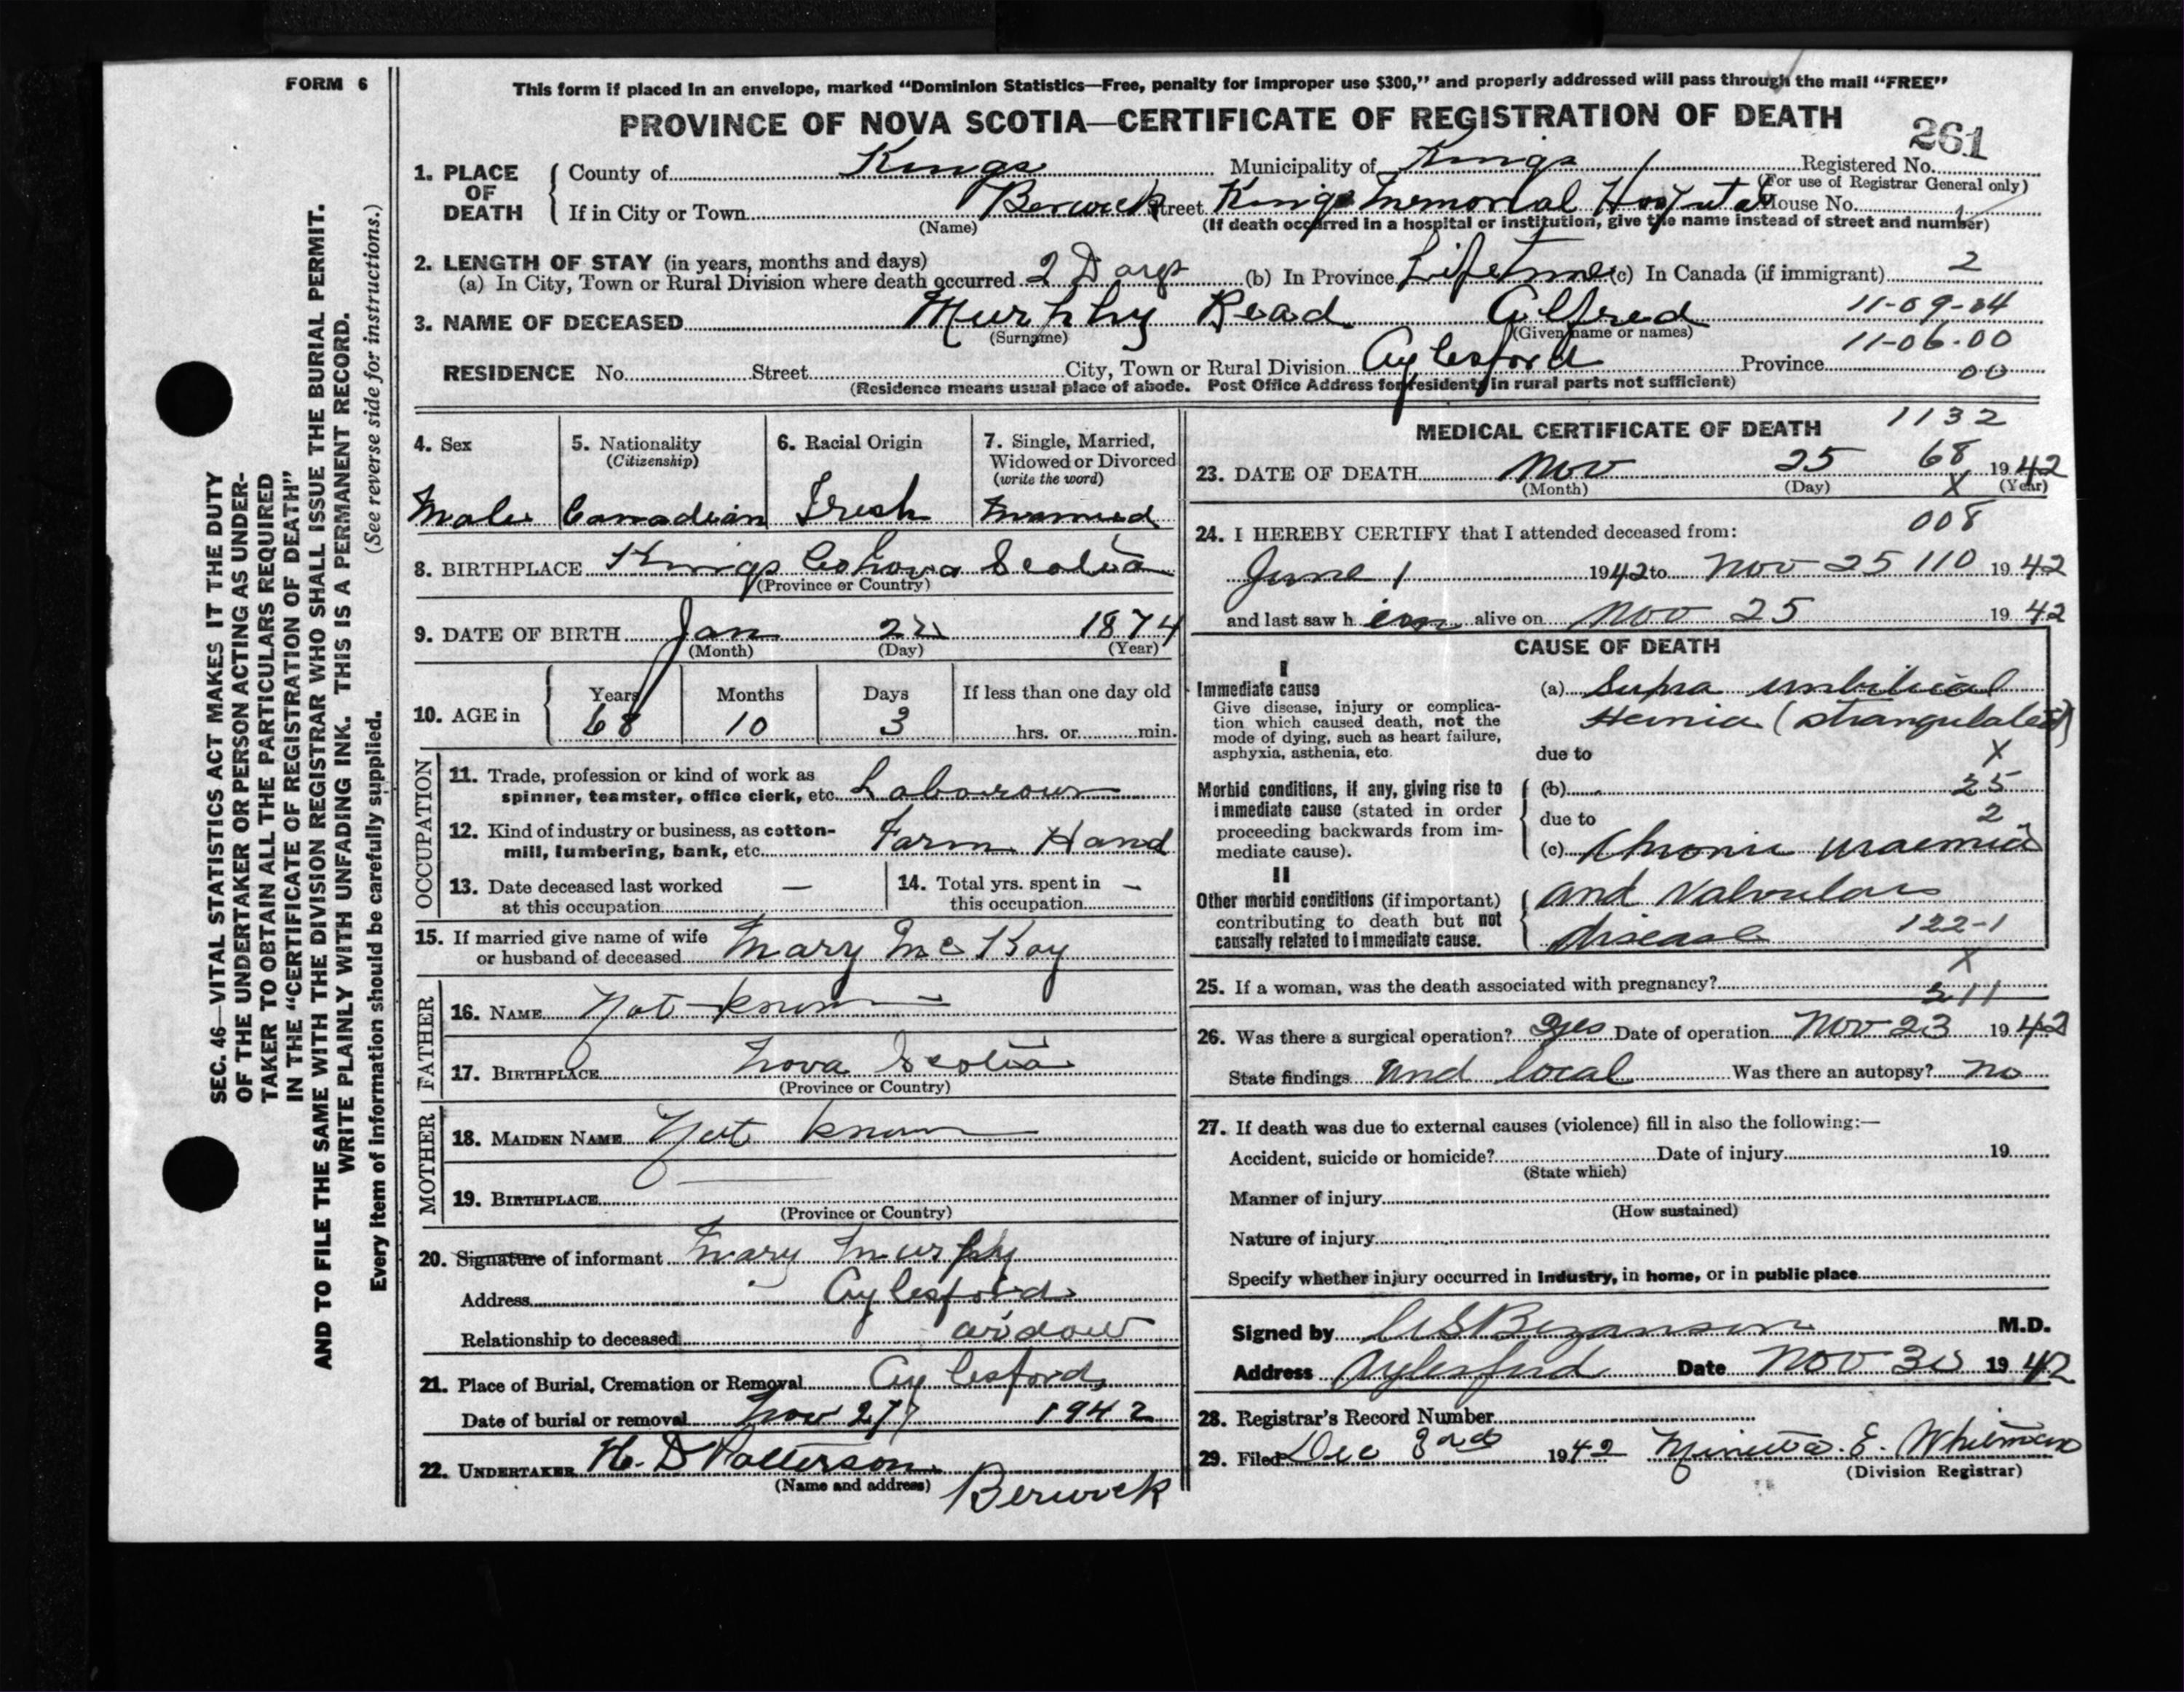 FORM 6
This form if placed in an envelope, marked “Dominion Statistics—Free, penalty for improper use $300,” and properly addressed will pass through the mail “FREE”
PROVINCE OF NOVA SCOTIA—CERTIFICATE OF REGISTRATION OF DEATH
261
SEC. 46—VITAL STATISTICS ACT MAKES IT THE DUTY
OF THE UNDERTAKER OR PERSON ACTING AS UNDER-
TAKER TO OBTAIN ALL THE PARTICULARS REQUIRED
IN THE “CERTIFICATE OF REGISTRATION OF DEATH”
AND TO FILE THE SAME WITH THE DIVISION REGISTRAR WHO SHALL ISSUE THE BURIAL PERMIT.
WRITE PLAINLY WITH UNFADING INK. THIS IS A PERMANENT RECORD.
Every item of information should be carefully supplied. (See reverse side for instructions.)
1. PLACE OF DEATH
County of Kings Municipality of Kings Registered No.
(For use of Registrar General only)
If in City or Town Berwick Street Kings Memorial Hospital House No.
(Name) (If death occurred in a hospital or institution, give the name instead of street and number)
2. LENGTH OF STAY (in years, months and days)
(a) In City, Town or Rural Division where death occurred 2 Days (b) In Province Lifetime (c) In Canada (if immigrant) 2
3. NAME OF DECEASED Murphy Read Alfred 11-09-04
(Surname) (Given name or names)
11-06-00
RESIDENCE No. Street City, Town or Rural Division Aylesford Province 00
(Residence means usual place of abode. Post Office Address for residents in rural parts not sufficient)
4. Sex
Male
5. Nationality
(Citizenship)
Canadian
6. Racial Origin
Irish
7. Single, Married,
Widowed or Divorced
(write the word)
Married
8. BIRTHPLACE Kings Co Nova Scotia
(Province or Country)
9. DATE OF BIRTH Jan 22 1874
(Month) (Day) (Year)
10. AGE in
Years Months Days If less than one day old
68 10 3 hrs. or min.
OCCUPATION
11. Trade, profession or kind of work as
spinner, teamster, office clerk, etc. Labourour
12. Kind of industry or business, as cotton-
mill, lumbering, bank, etc. Farm Hand
13. Date deceased last worked —
at this occupation
14. Total yrs. spent in —
this occupation
15. If married give name of wife
or husband of deceased Mary McKay
FATHER
16. NAME Not known
17. BIRTHPLACE Nova Scotia
(Province or Country)
MOTHER
18. MAIDEN NAME Not known
19. BIRTHPLACE
(Province or Country)
20. Signature of informant Mary Murphy
Address Aylesford
Relationship to deceased widow
21. Place of Burial, Cremation or Removal Aylesford
Date of burial or removal Nov 27 1942
22. UNDERTAKER H. D Patterson
(Name and address) Berwick
MEDICAL CERTIFICATE OF DEATH 1132
68
23. DATE OF DEATH Nov 25 1942
(Month) (Day) (Year)
X
24. I HEREBY CERTIFY that I attended deceased from: 008
June 1 1942 to Nov 25 110 1942
and last saw him alive on Nov 25 1942
CAUSE OF DEATH
I
Immediate cause
Give disease, injury or complica-
tion which caused death, not the
mode of dying, such as heart failure,
asphyxia, asthenia, etc.
(a) Supra umbilical
Hernia (strangulated)
due to X
Morbid conditions, if any, giving rise to
immediate cause (stated in order
proceeding backwards from im-
mediate cause).
(b) 25
due to 2
(c) Chronic uraemia
II
Other morbid conditions (if important)
contributing to death but not
causally related to immediate cause.
and Valvular
disease 122-1
X
25. If a woman, was the death associated with pregnancy?
211
26. Was there a surgical operation? Yes Date of operation Nov 23 1942
State findings und local Was there an autopsy? no
27. If death was due to external causes (violence) fill in also the following:—
Accident, suicide or homicide? Date of injury 19
(State which)
Manner of injury
(How sustained)
Nature of injury
Specify whether injury occurred in industry, in home, or in public place
Signed by Bezanson M.D.
Address Aylesford Date Nov 30 1942
28. Registrar’s Record Number
29. Filed Dec 3rd 1942 E. Whitman
(Division Registrar)